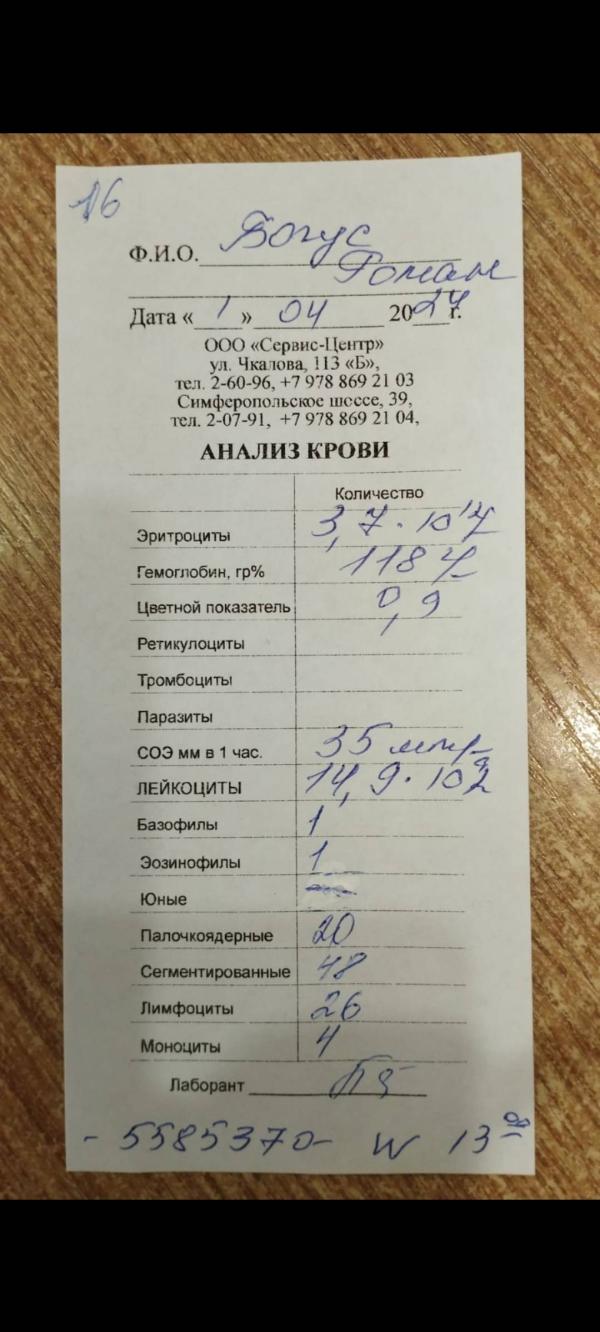 16
Ф.И.О. Богус
Роман
Дата «1» 04 2024 г.
ООО «Сервис-Центр»
ул. Чкалова, 113 «Б»,
тел. 2-60-96, +7 978 869 21 03
Симферопольское шоссе, 39,
тел. 2-07-91, +7 978 869 21 04,
АНАЛИЗ КРОВИ
Количество
Эритроциты 3,7·10
Гемоглобин, гр% 118
Цветной показатель 0,9
Ретикулоциты
Тромбоциты
Паразиты
СОЭ мм в 1 час. 35
ЛЕЙКОЦИТЫ 14,9·10
Базофилы 1
Эозинофилы 1
Юные
Палочкоядерные 20
Сегментированные 48
Лимфоциты 26
Моноциты 4
Лаборант
- 5585370- W 13 00